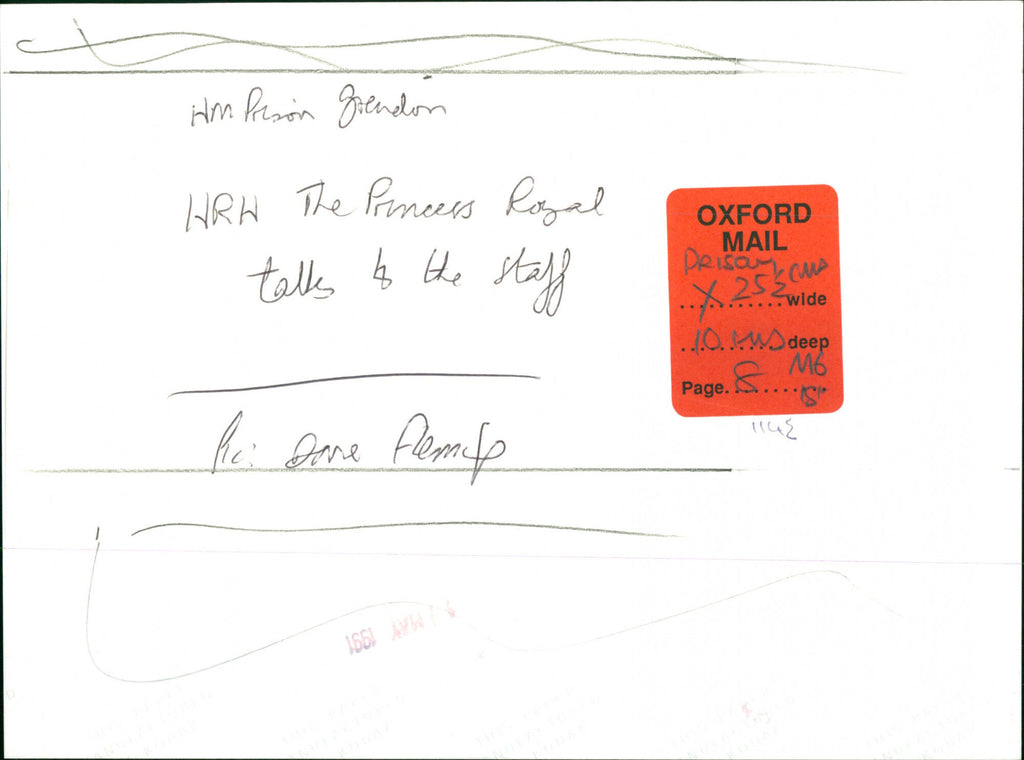 HM Prison Grendon
HRH The Princess Royal
talks to the staff
Pic: Dave Fleming
OXFORD
MAIL
PRISON
X 252 cms
wide
10 cms deep
Page 8 M6
1 MAY 1991